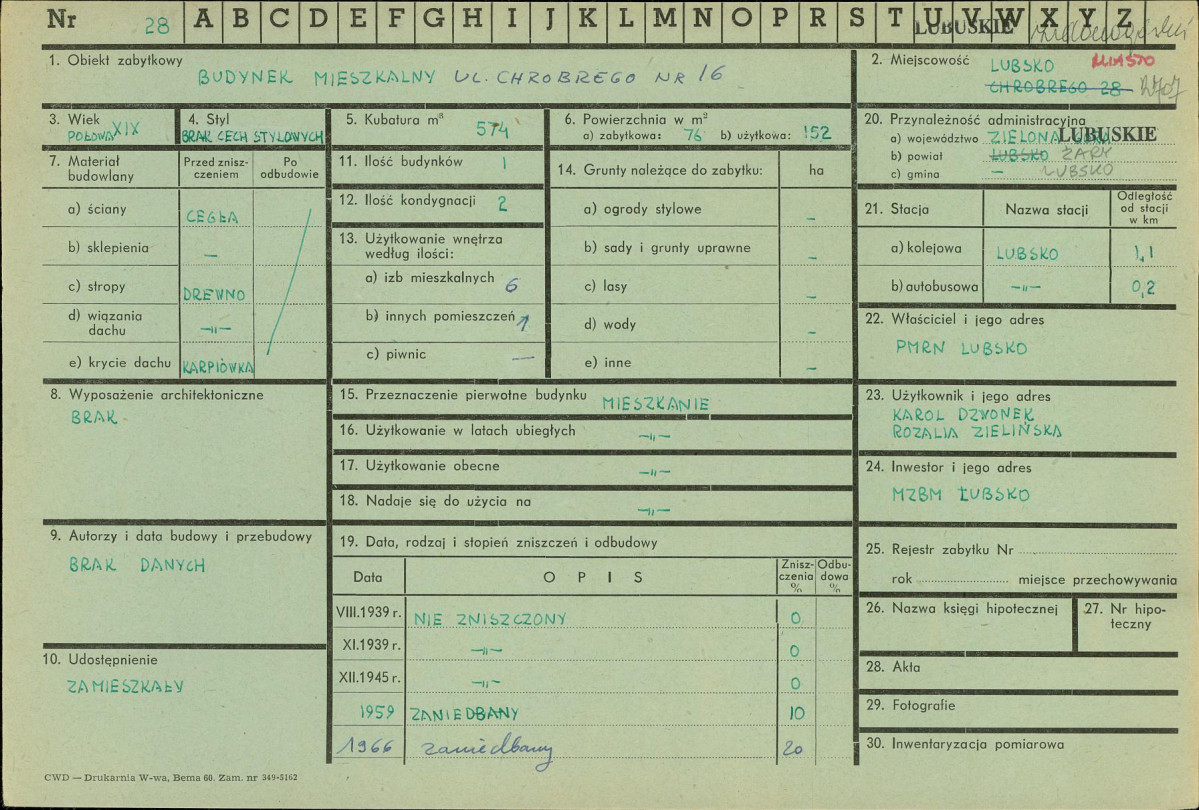 Nr 28 A B C D E F G H I J K L M N O P R S T U V W X Y Z
LUBUSKIE
1. Obiekt zabytkowy
BUDYNEK MIESZKALNY UL. CHROBREGO NR 16
2. Miejscowość LUBSKO MIASTO
CHROBREGO 28
3. Wiek
POŁOWA XIX
4. Styl
BRAK CECH STYLOWYCH
5. Kubatura m³
574
6. Powierzchnia w m²
a) zabytkowa: 76 b) użytkowa: 152
20. Przynależność administracyjna
a) województwo ZIELONA LUBUSKIE
b) powiat LUBSKO ŻARY
c) gmina — LUBSKO
7. Materiał budowlany
Przed zniszczeniem
Po odbudowie
a) ściany CEGŁA
b) sklepienia —
c) stropy DREWNO
d) wiązania dachu —„—
e) krycie dachu KARPIÓWKA
11. Ilość budynków 1
12. Ilość kondygnacji 2
13. Użytkowanie wnętrza
według ilości:
a) izb mieszkalnych 6
b) innych pomieszczeń 1
c) piwnic —
14. Grunty należące do zabytku: ha
a) ogrody stylowe —
b) sady i grunty uprawne —
c) lasy —
d) wody —
e) inne —
21. Stacja
Nazwa stacji
Odległość od stacji w km
a) kolejowa LUBSKO 1,1
b) autobusowa —„— 0,2
22. Właściciel i jego adres
PMRN LUBSKO
8. Wyposażenie architektoniczne
BRAK
15. Przeznaczenie pierwotne budynku MIESZKANIE
16. Użytkowanie w latach ubiegłych —„—
17. Użytkowanie obecne —„—
18. Nadaje się do użycia na —„—
23. Użytkownik i jego adres
KAROL DZWONEK
ROZALIA ZIELIŃSKA
24. Inwestor i jego adres
MZBM LUBSKO
9. Autorzy i data budowy i przebudowy
BRAK DANYCH
10. Udostępnienie
ZAMIESZKAŁY
19. Data, rodzaj i stopień zniszczeń i odbudowy
Data OPIS Zniszczenia % Odbudowa %
VIII.1939 r. NIE ZNISZCZONY 0
XI.1939 r. —„— 0
XII.1945 r. —„— 0
1959 ZANIEDBANY 10
1966 zaniedbany 20
25. Rejestr zabytku Nr
rok miejsce przechowywania
26. Nazwa księgi hipotecznej
27. Nr hipoteczny
28. Akta
29. Fotografie
30. Inwentaryzacja pomiarowa
CWD — Drukarnia W-wa, Bema 60. Zam. nr 349-5162